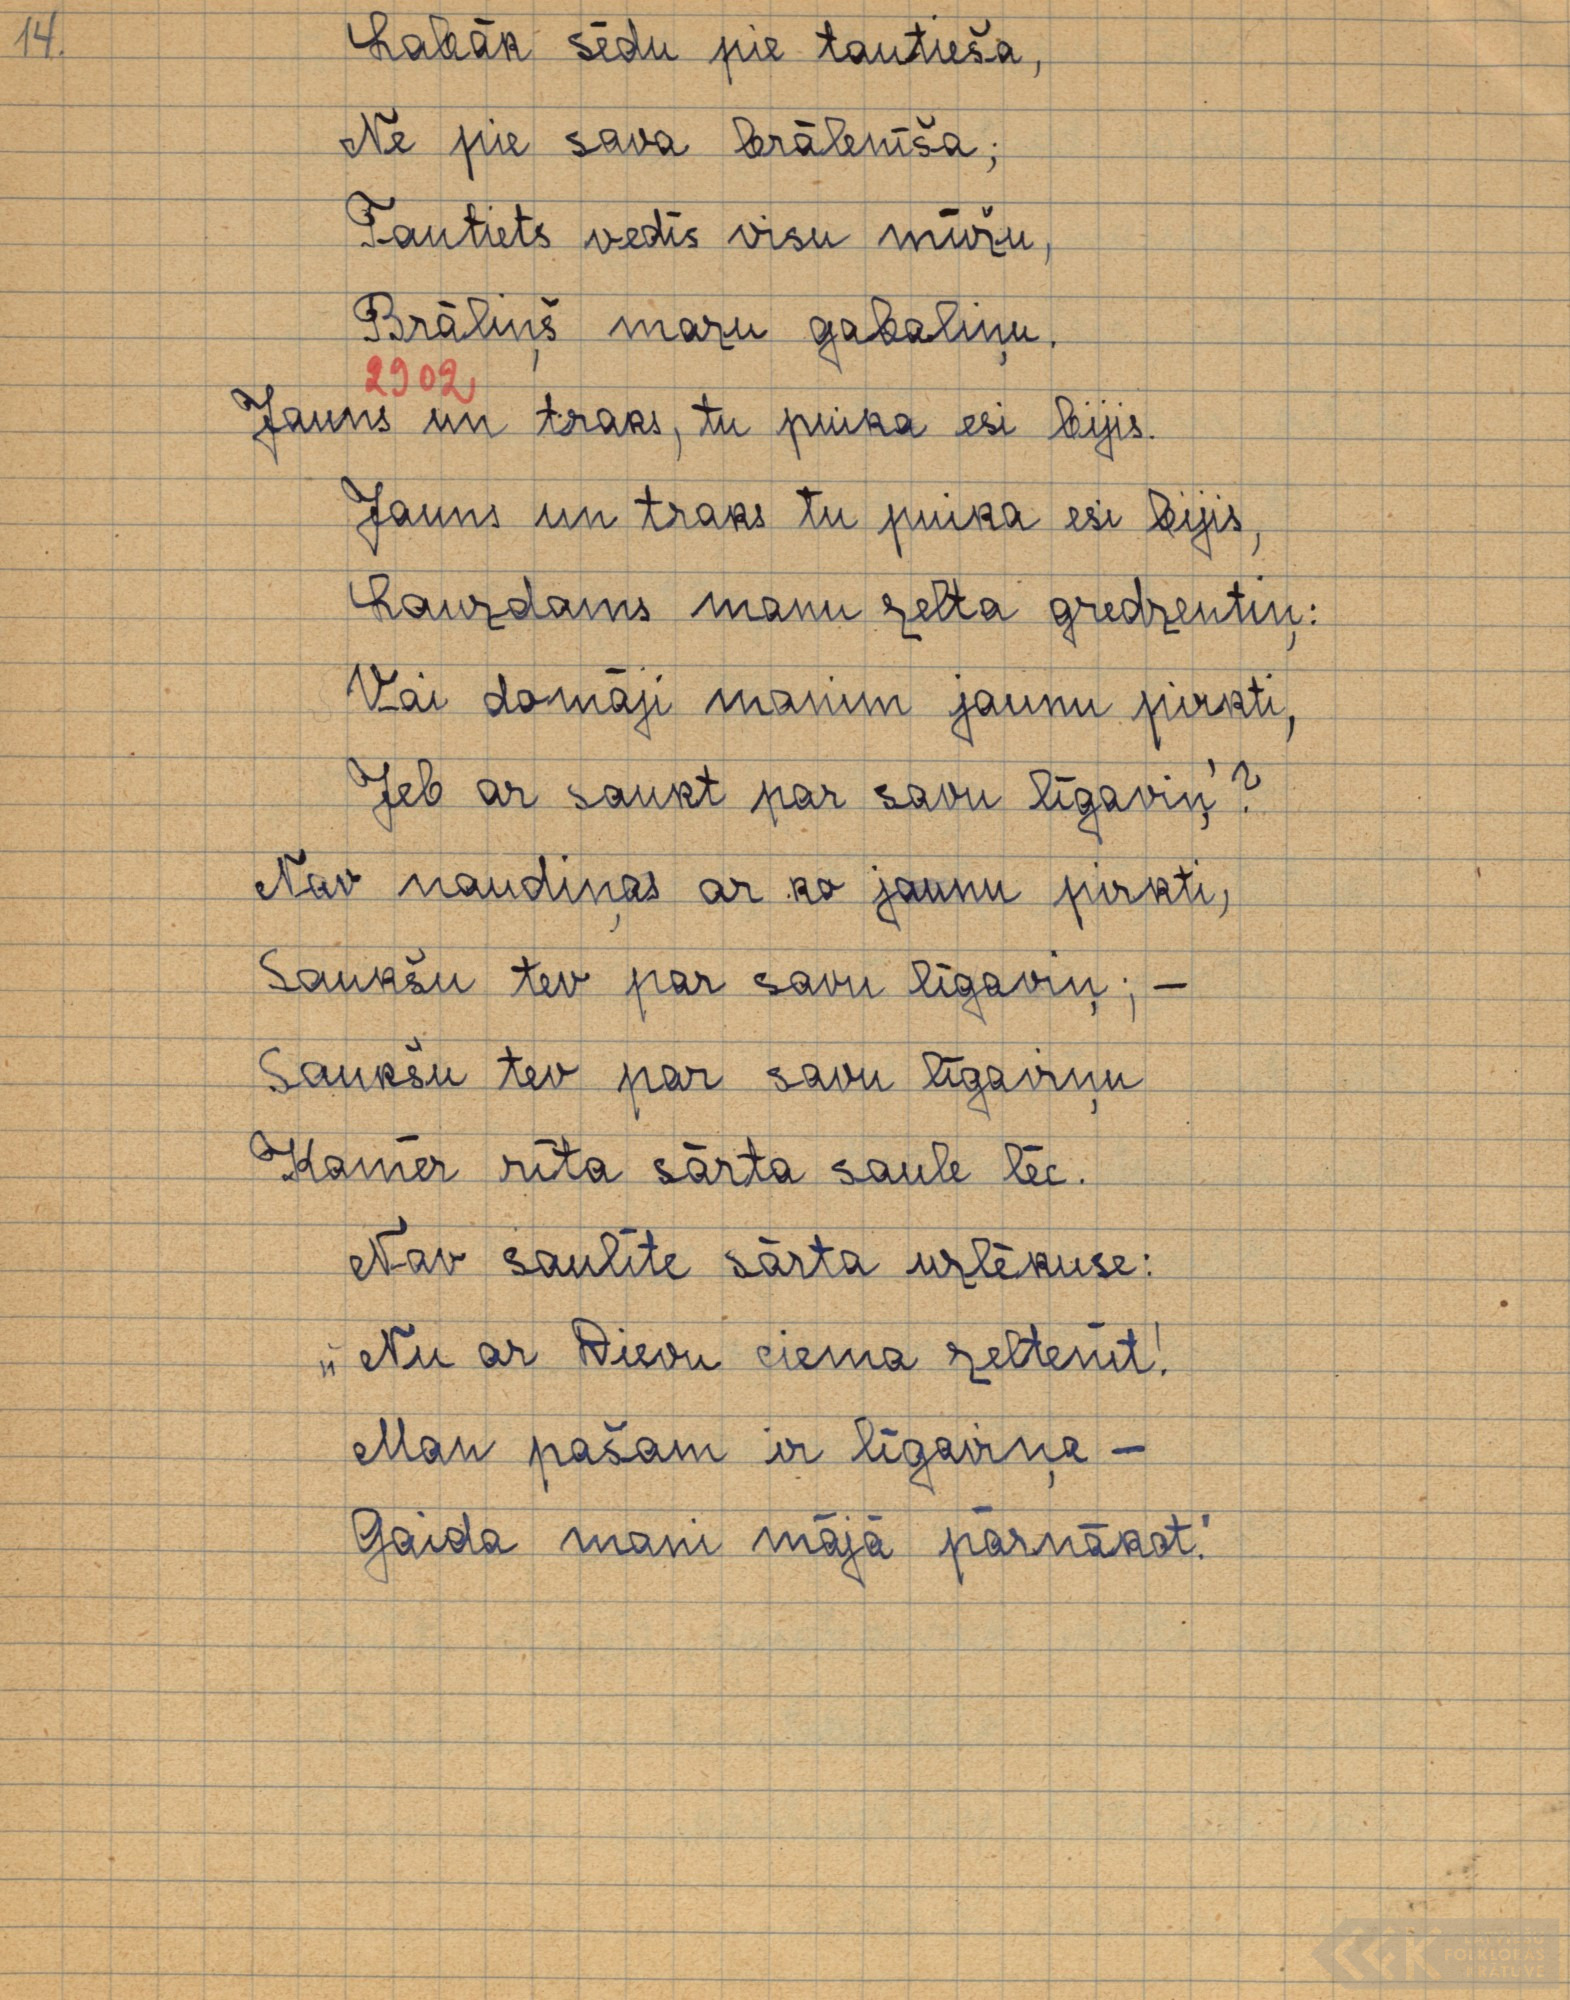 14.
Labāk sēdu pie tautieša,
Ne pie sava brālenīša;
Tautiets vedīs visu mūžu,
Brāliņš mazu gabaliņu.
2902
Jauns un traks, tu puika esi bijis.
Jauns un traks tu puika esi bijis,
Lauzdams manu zelta gredzentiņ:
Vai domāji manim jaunu pirkti,
Jeb ar saukt par savu līgaviņ'?
Nav naudiņas ar ko jaunu pirkti,
Saukšu tev par savu līgaviņ; –
Saukšu tev par savu līgaviņu
Kamēr rīta sārta saule lēc.
Nav saulīte sārta uzlēkuse:
„Nu ar Dievu ciema zeltenīt!
Man pašam ir līgaviņa –
Gaida mani mājā pārnākot!
LATVIEŠU
FOLKLORAS
KRĀTUVE